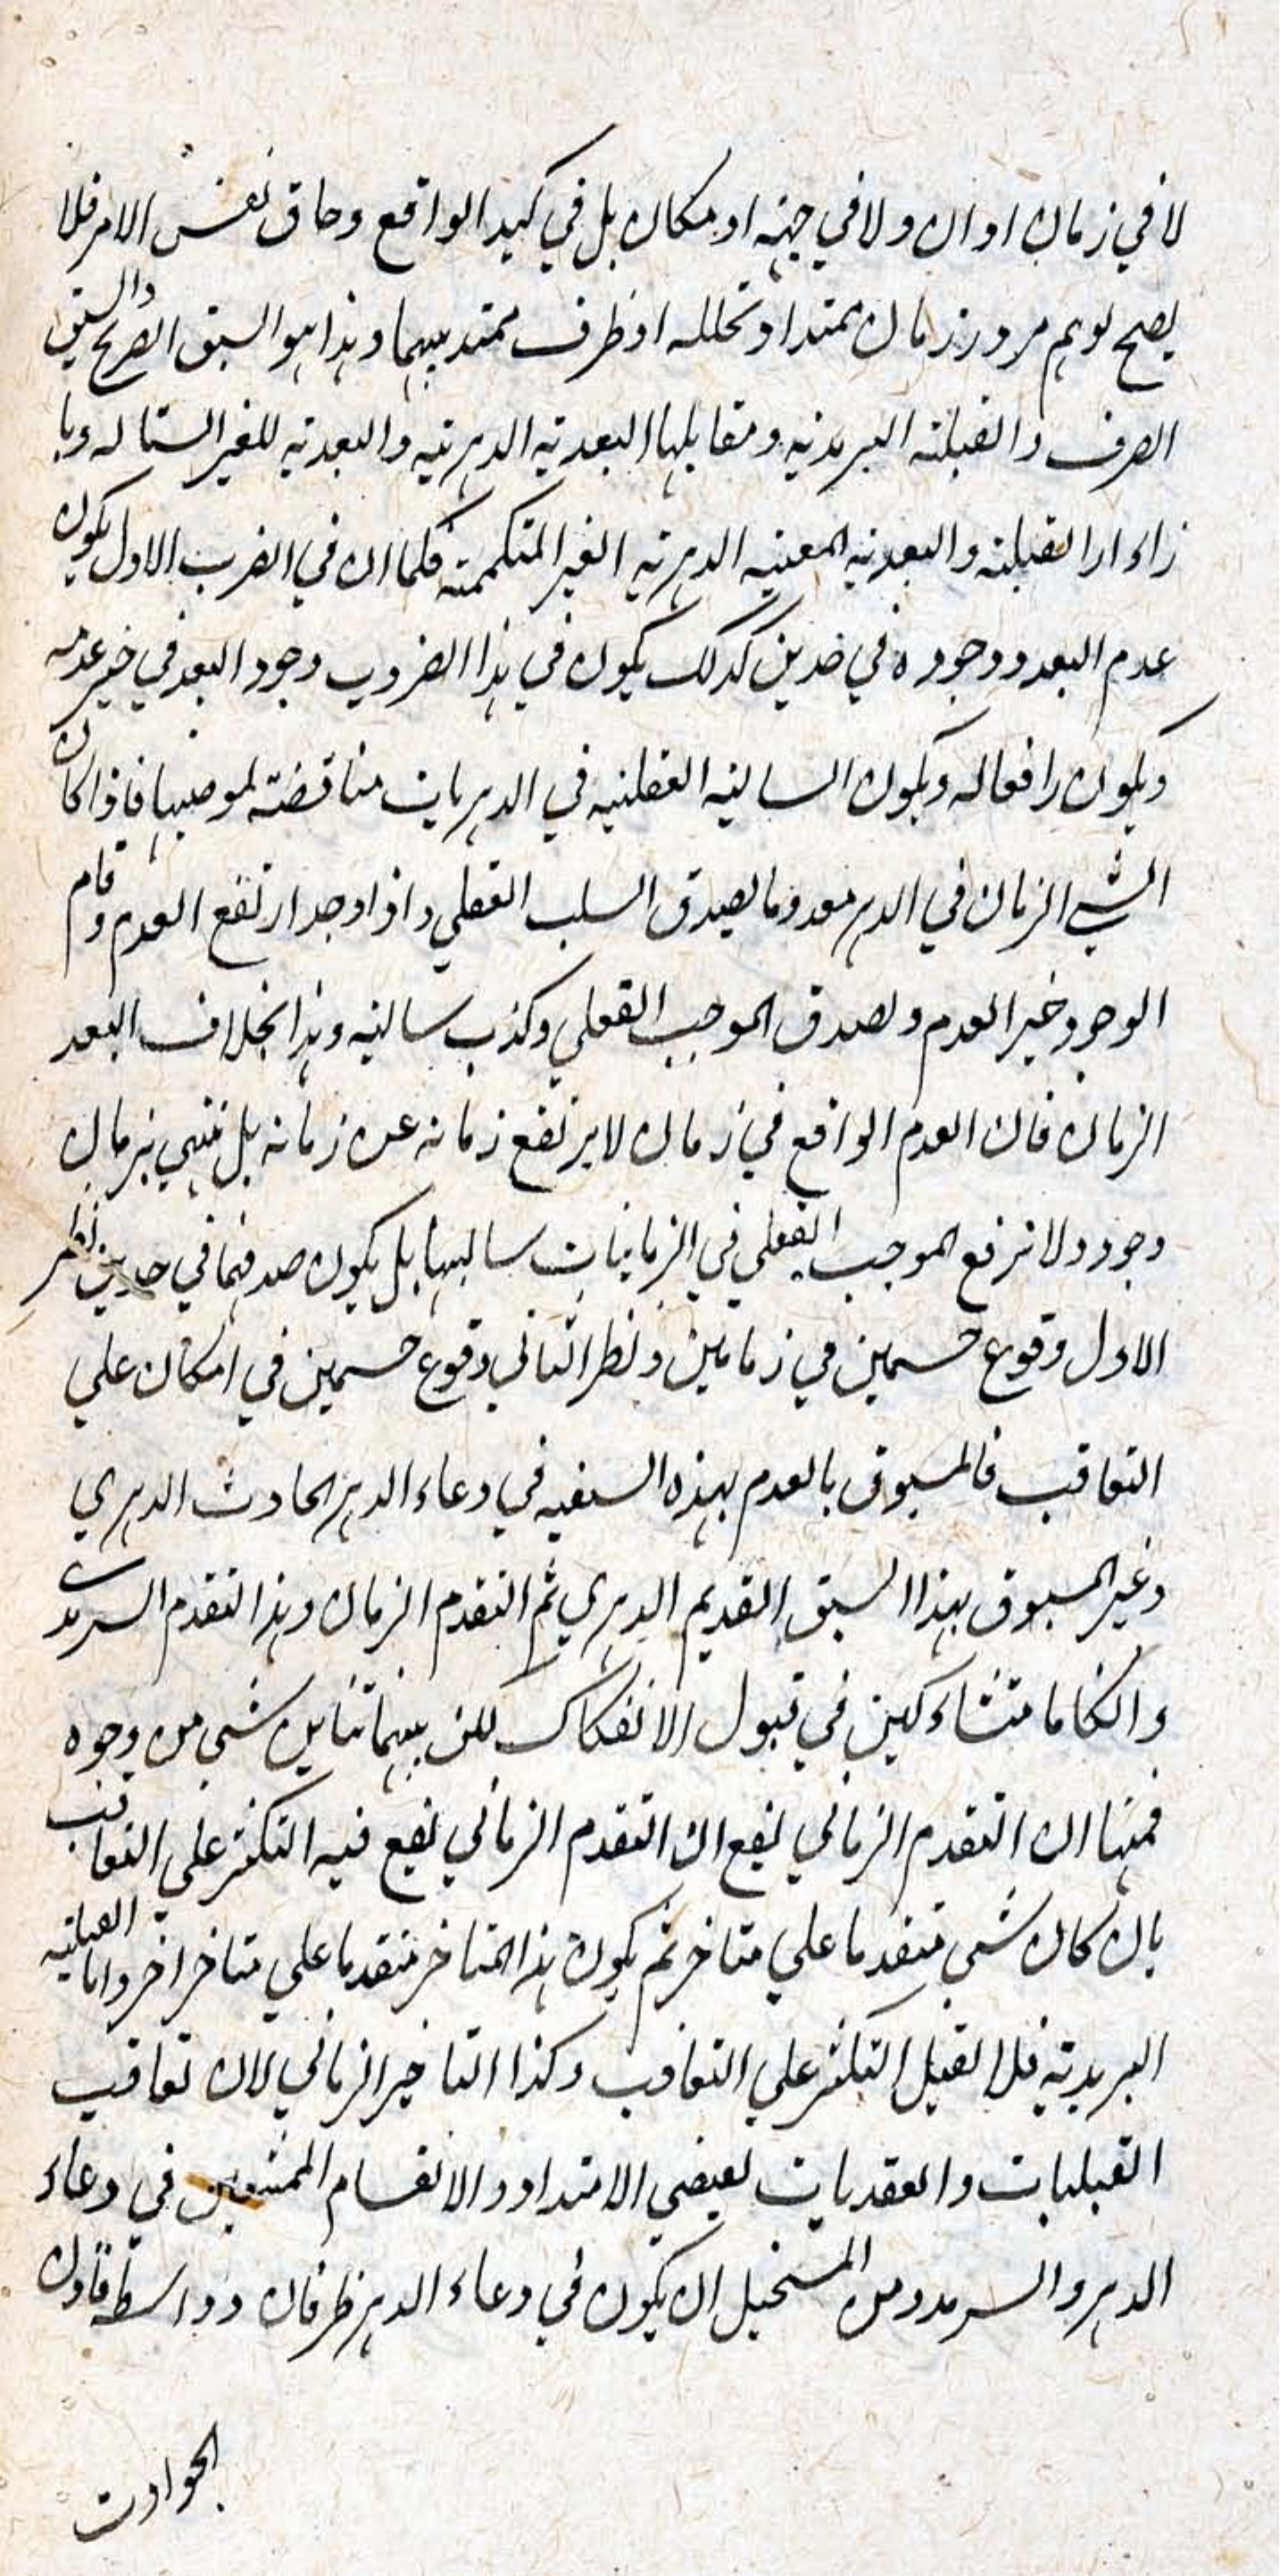 لا في زمان او ان ولا في جهة او مكان بل في كبد الواقع وحاق نفس الامر فلا
يصح توهم مرور زمان ممتد او تخلله او ظرف ممتد بينهما وهذا هو السبق الصريح والسبق
الصرف والقبلية السرمدية ومقابلها البعدية الدهرية والبعدية الغير السيالة وبا
زاء ان القبلية والبعدية المعية الدهرية الغير المتكممة فكما ان في الضرب الاول يكون
عدم البعد ووجوده في حدين كذلك يكون في هذا الضروب وجود البعد في حيز عدمه
ويكون رافعا له ويكون السالبة الفعلية في الدهريات مناقضة لموجبها فاذا كان
الشي الزمان في الدهر معدوما يصدق السلب الفعلي واذا وجد ارتفع العدم وقام
الوجود حيز العدم وصدق الموجب الفعلي وكذب سالبه وهذا بخلاف البعد
الزمان فان العدم الواقع في زمان لا يرتفع زمانه عن زمانه بل ينتهي بزمان
وجود ولا ترفع الموجب الفعلي في الزمانيات سالبها بل يكون صدقهما في حدين نظير
الاول وقوع جسمين في زمانين ونظر الثاني وقوع جسمين في امكان علي
التعاقب فالمسبوق بالعدم بهذه السبقية في وعاء الدهر الحادث الدهري
وغير المسبوق بهذا السبق القديم الدهري ثم التقدم الزمان وهذا التقدم السرمدي
وانكاما متشاركين في قبول الانفكاك لكن بينهما تباين شي من وجوه
فمنها ان التقدم الزماني يقع ان التقدم الزماني يقع فيه التكثر علي التعاقب
بان كان شي متقدما علي متاخر ثم يكون هذا المتاخر متقدما علي متاخر اخر واما القبلية
السرمدية فلا تقبل التكثر علي التعاقب وكذا التاخير الزماني لان تعاقب
القبليات والعقديات يقتضي الامتداد والانقسام الممتنعين في وعاء
الدهر والسرمد ومن المستحيل ان يكون في وعاء الدهر ظرفان وواسطة فاذن
الحوادث